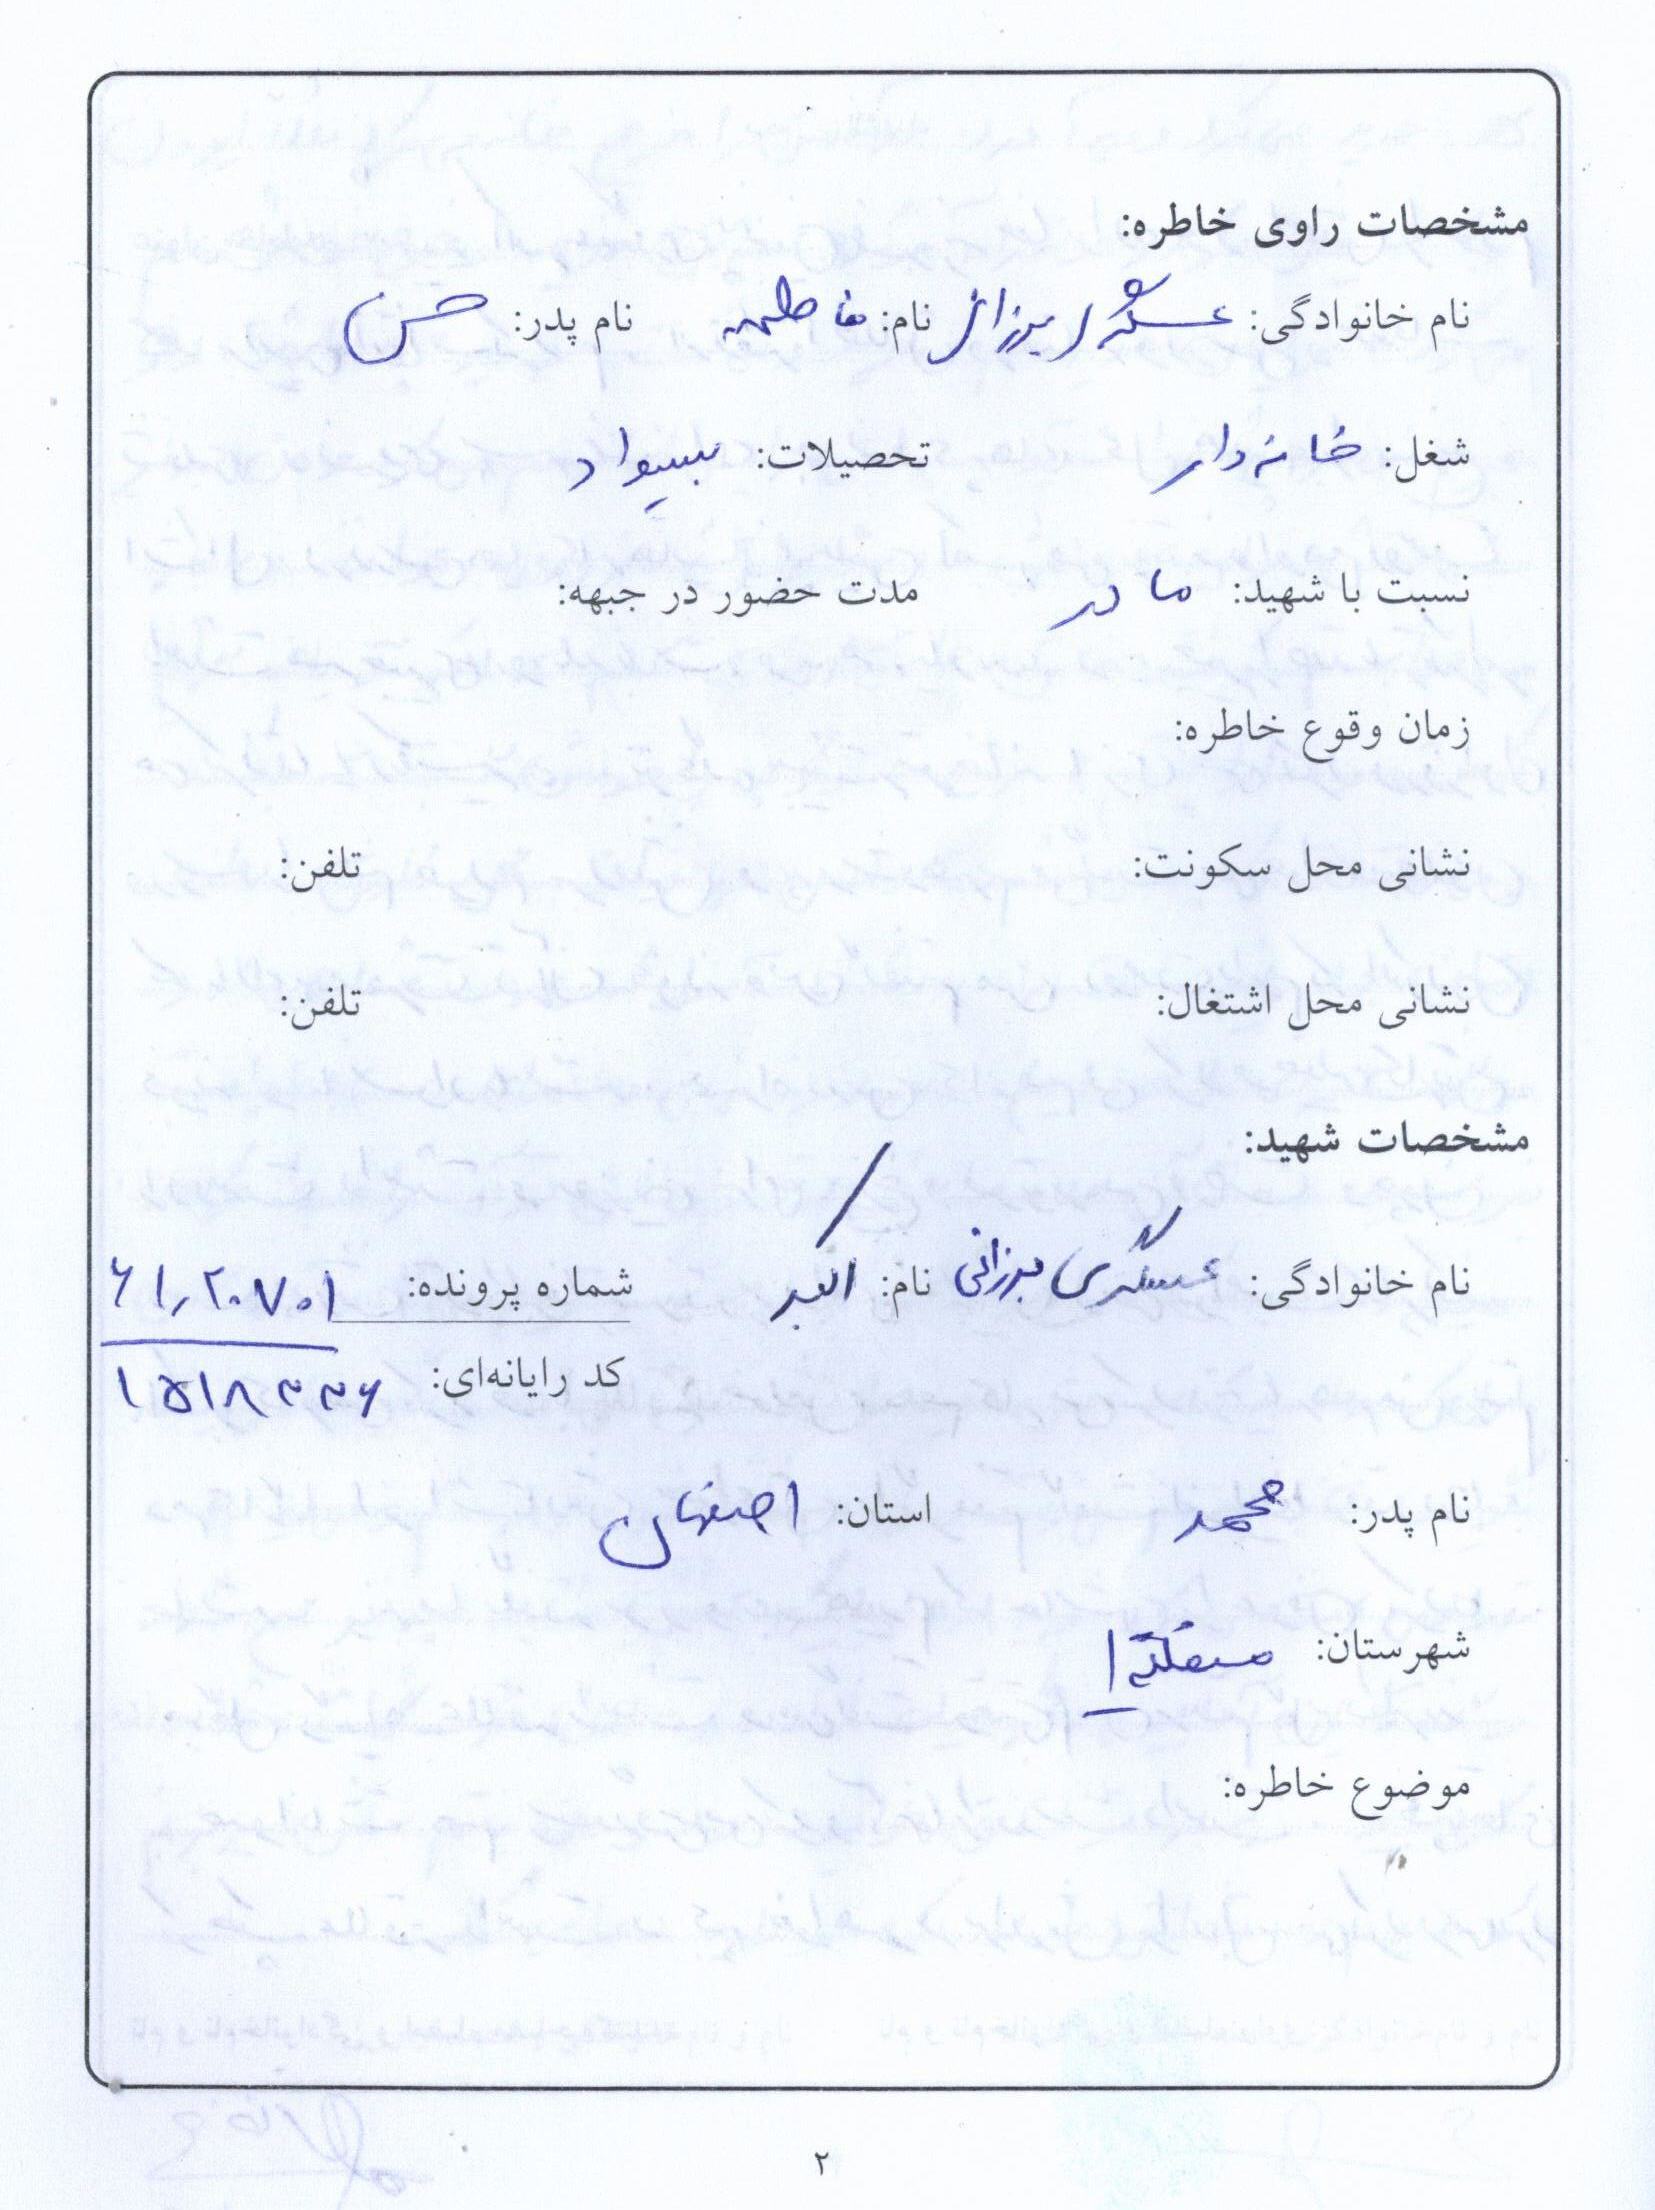 مشخصات راوی خاطره:
نام خانوادگی: عسگری میرزائی نام: فاطمه نام پدر: حسن
شغل: خانه دار تحصیلات: بیسواد
نسبت با شهید: مادر مدت حضور در جبهه:
زمان وقوع خاطره:
نشانی محل سکونت: تلفن:
نشانی محل اشتغال: تلفن:
مشخصات شهید:
نام خانوادگی: عسگری میرزائی نام: اکبر شماره پرونده: ۶۱٫۲۰۷۰۱
کد رایانه‌ای: ۱۵۱۸۳۳۶
نام پدر: محمد استان: اصفهان
شهرستان:
موضوع خاطره:
۲